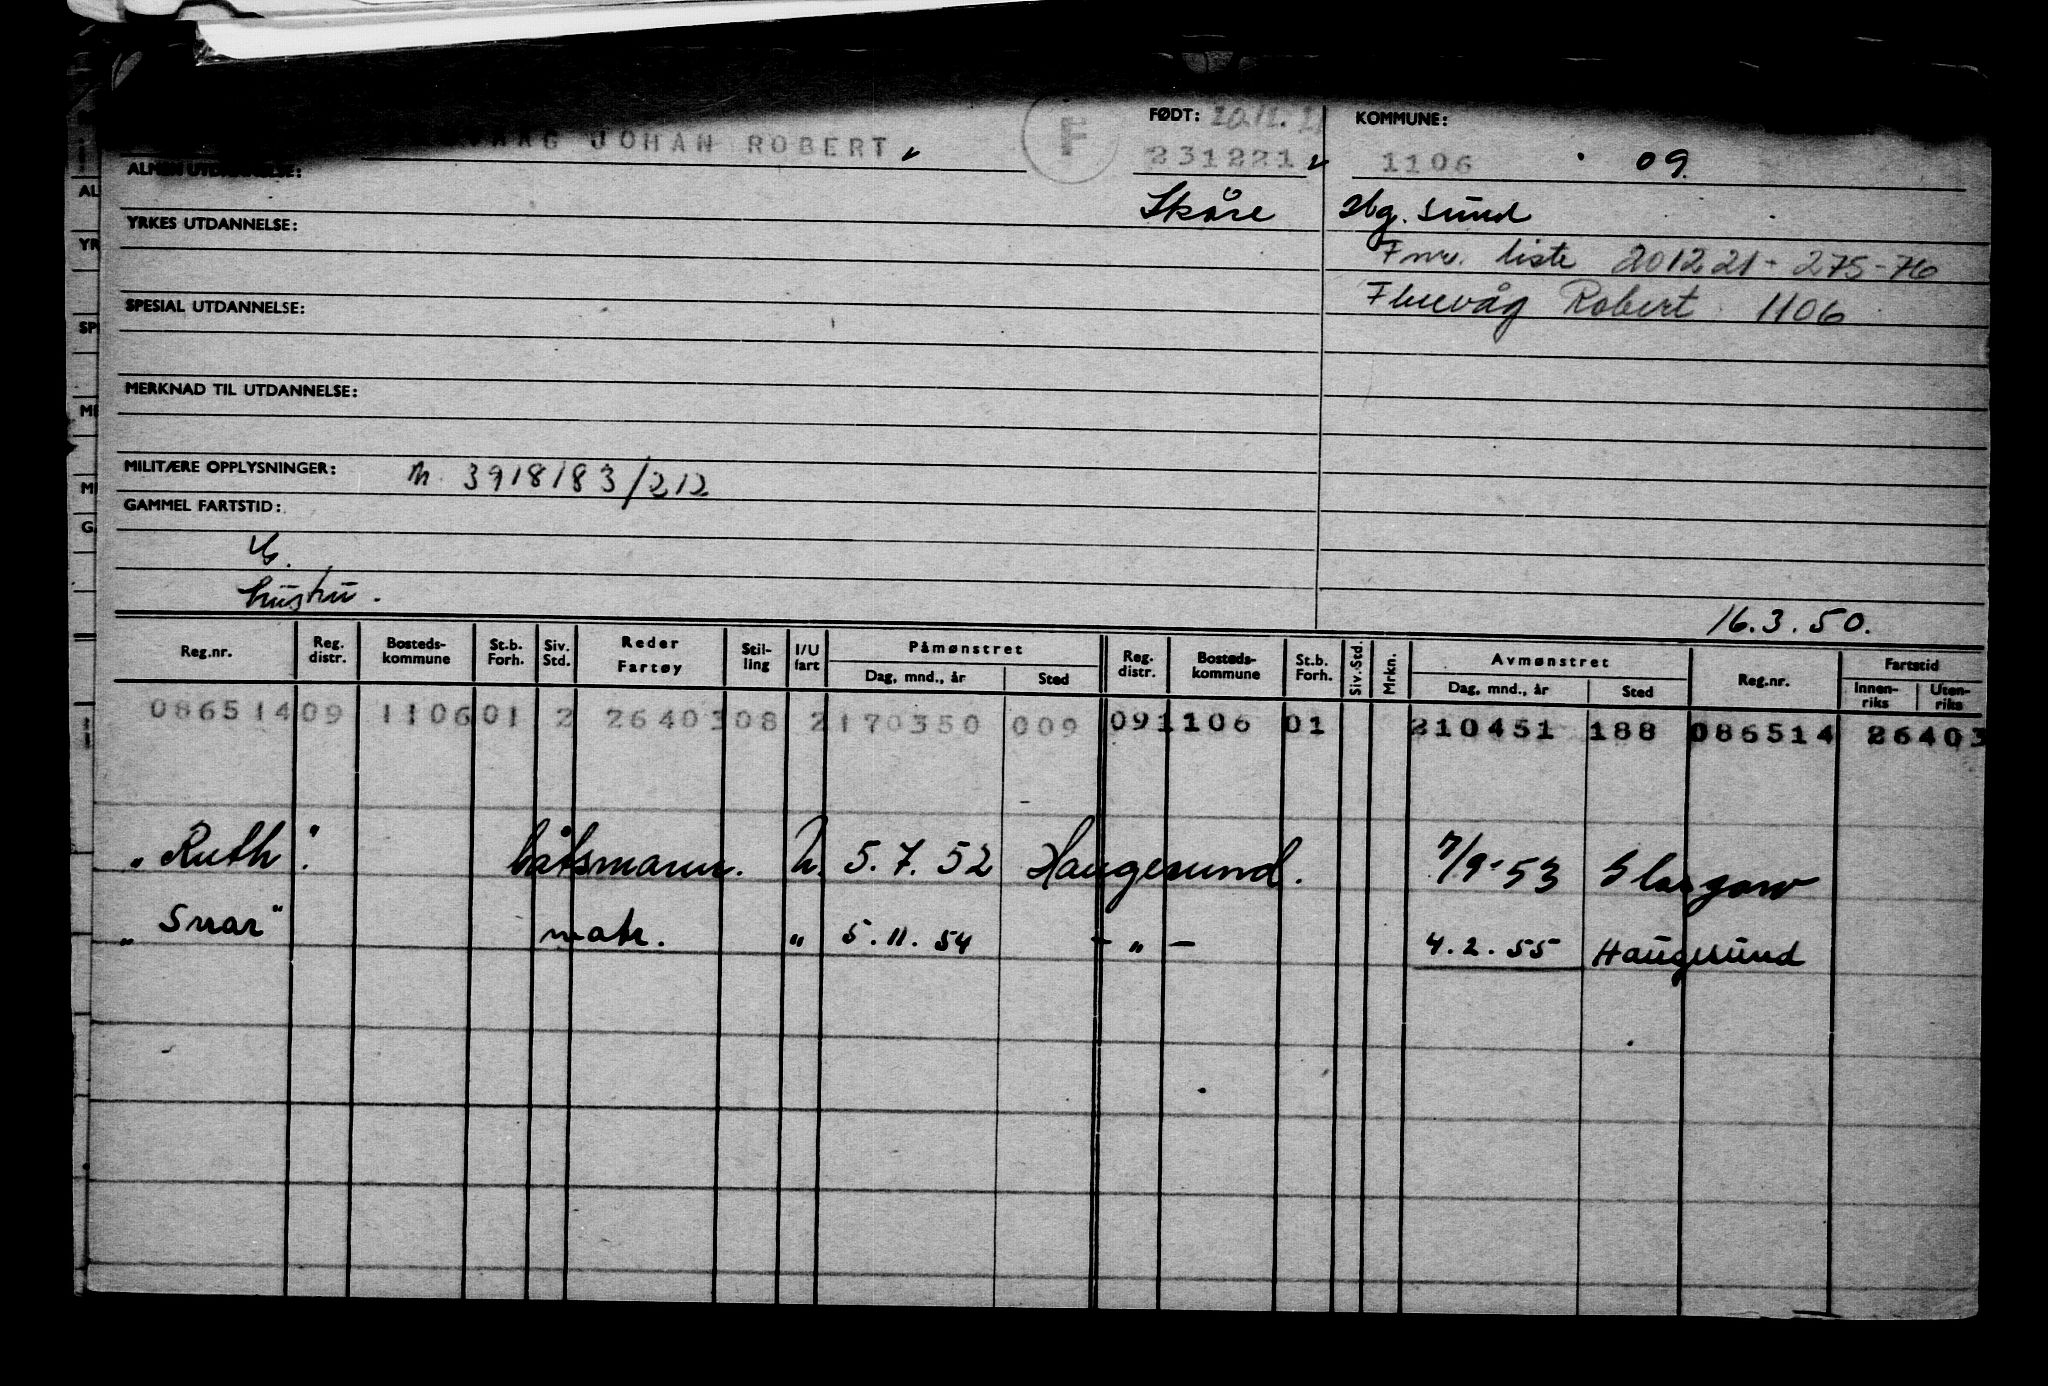 JOHAN ROBERT
F
FØDT: 20.12.21
231221
KOMMUNE:
1106 09.
ALMEN UTDANNELSE:
Skåre
Hg. sund
YRKES UTDANNELSE:
Fnr. liste 201221-275-76
SPESIAL UTDANNELSE:
Fluevåg Robert 1106
MERKNAD TIL UTDANNELSE:
MILITÆRE OPPLYSNINGER: M. 3918183/212
GAMMEL FARTSTID:
hustru.
16.3.50.
Reg.nr. Reg. distr. Bosteds-kommune St.b. Forh. Siv. Std. Reder Fartøy Stil-ling I/U fart Påmønstret Dag, mnd., år Sted Reg. distr. Bosteds-kommune St.b. Forh. Siv.-Std. Mrkn. Avmønstret Dag, mnd., år Sted Reg.nr. Fartstid Innen-riks Uten-riks
086514 09 1106 01 2 26403 08 2 170350 009 09 1106 01 210451 188 086514 26403
"Ruth". båtsmann. U. 5.7.52 Haugesund. 7/9-53 Glasgow
"Snar" matr. " 5.11.54 - " - 4.2.55 Haugesund